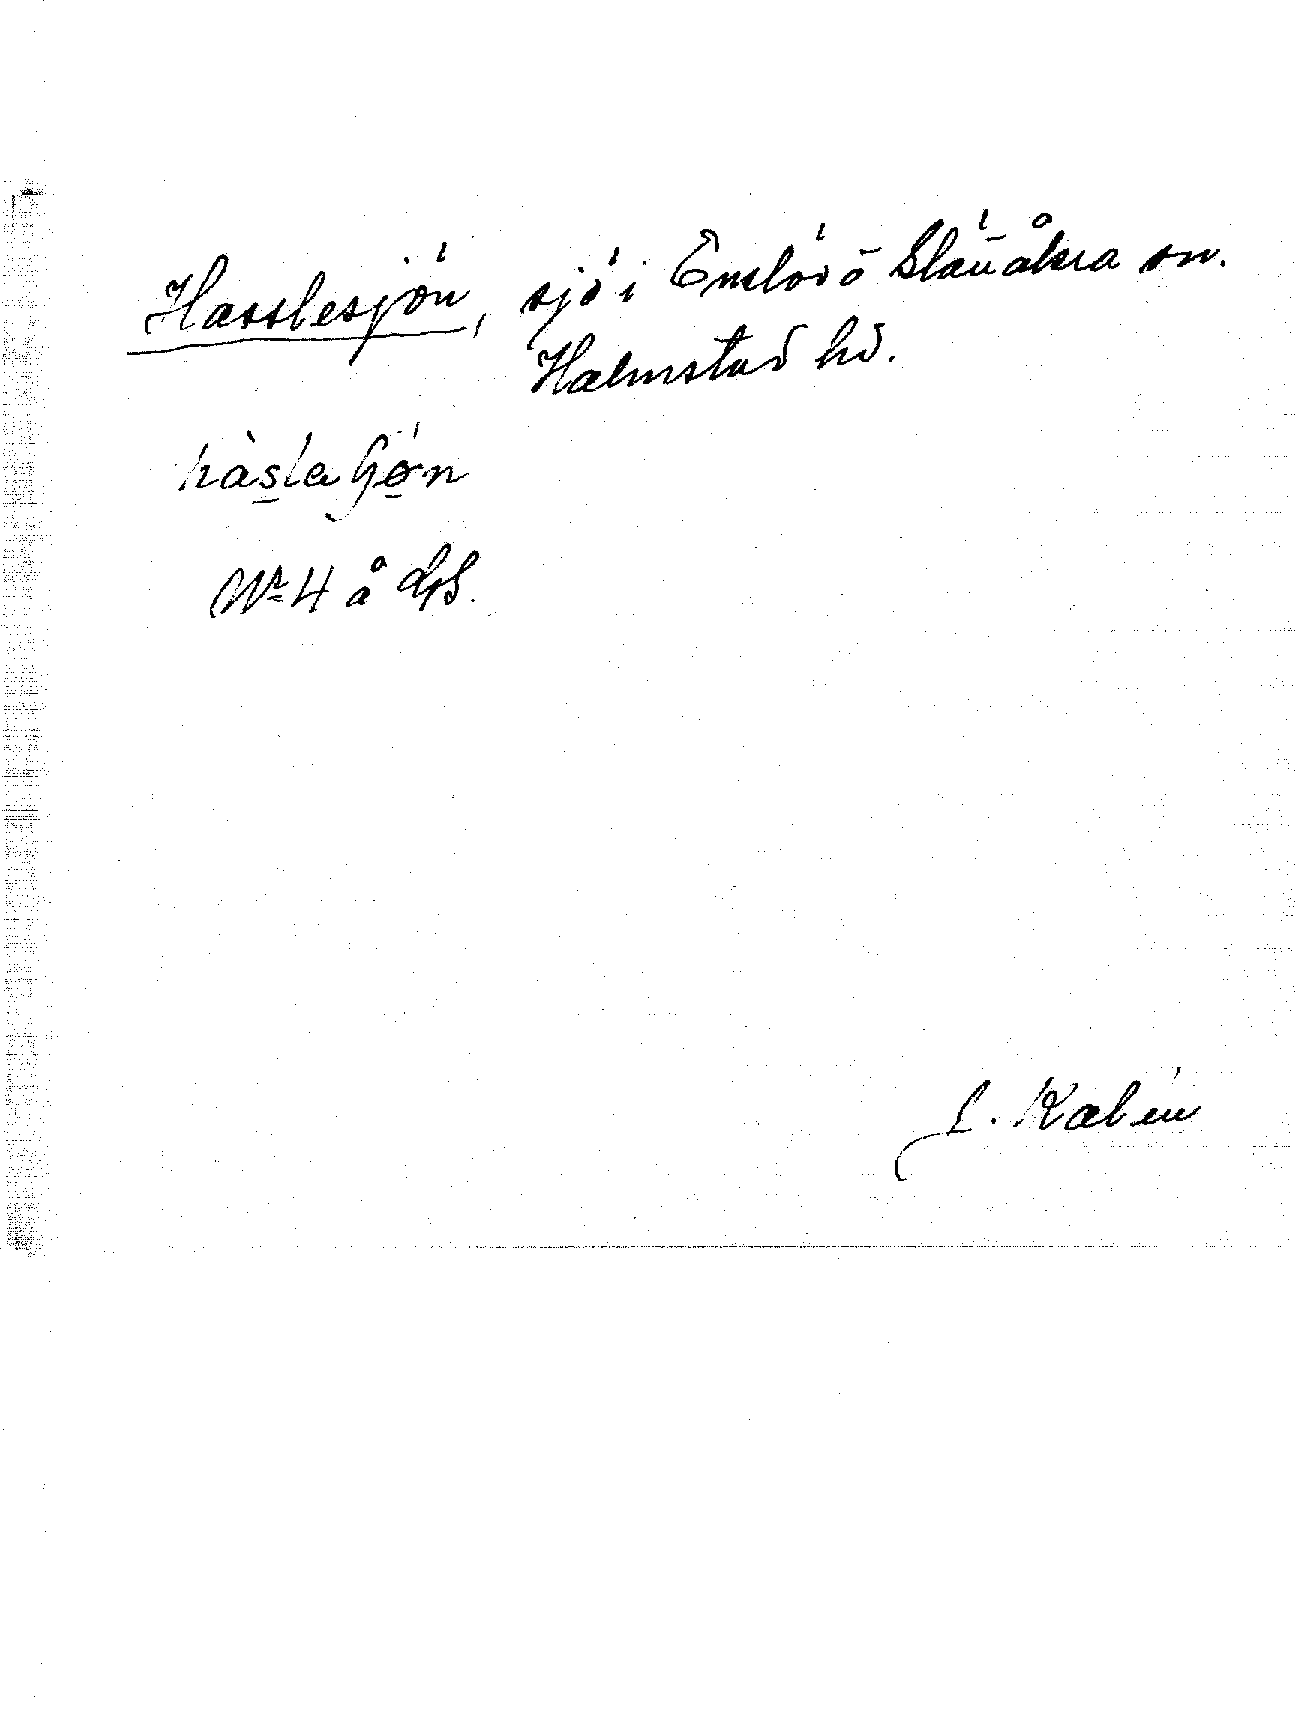 Hasslesjön, sjö i Enslöv o Slättåkra sn.
Halmstad hd.
hàsla
Nr 4 å GS.
L. Kalén